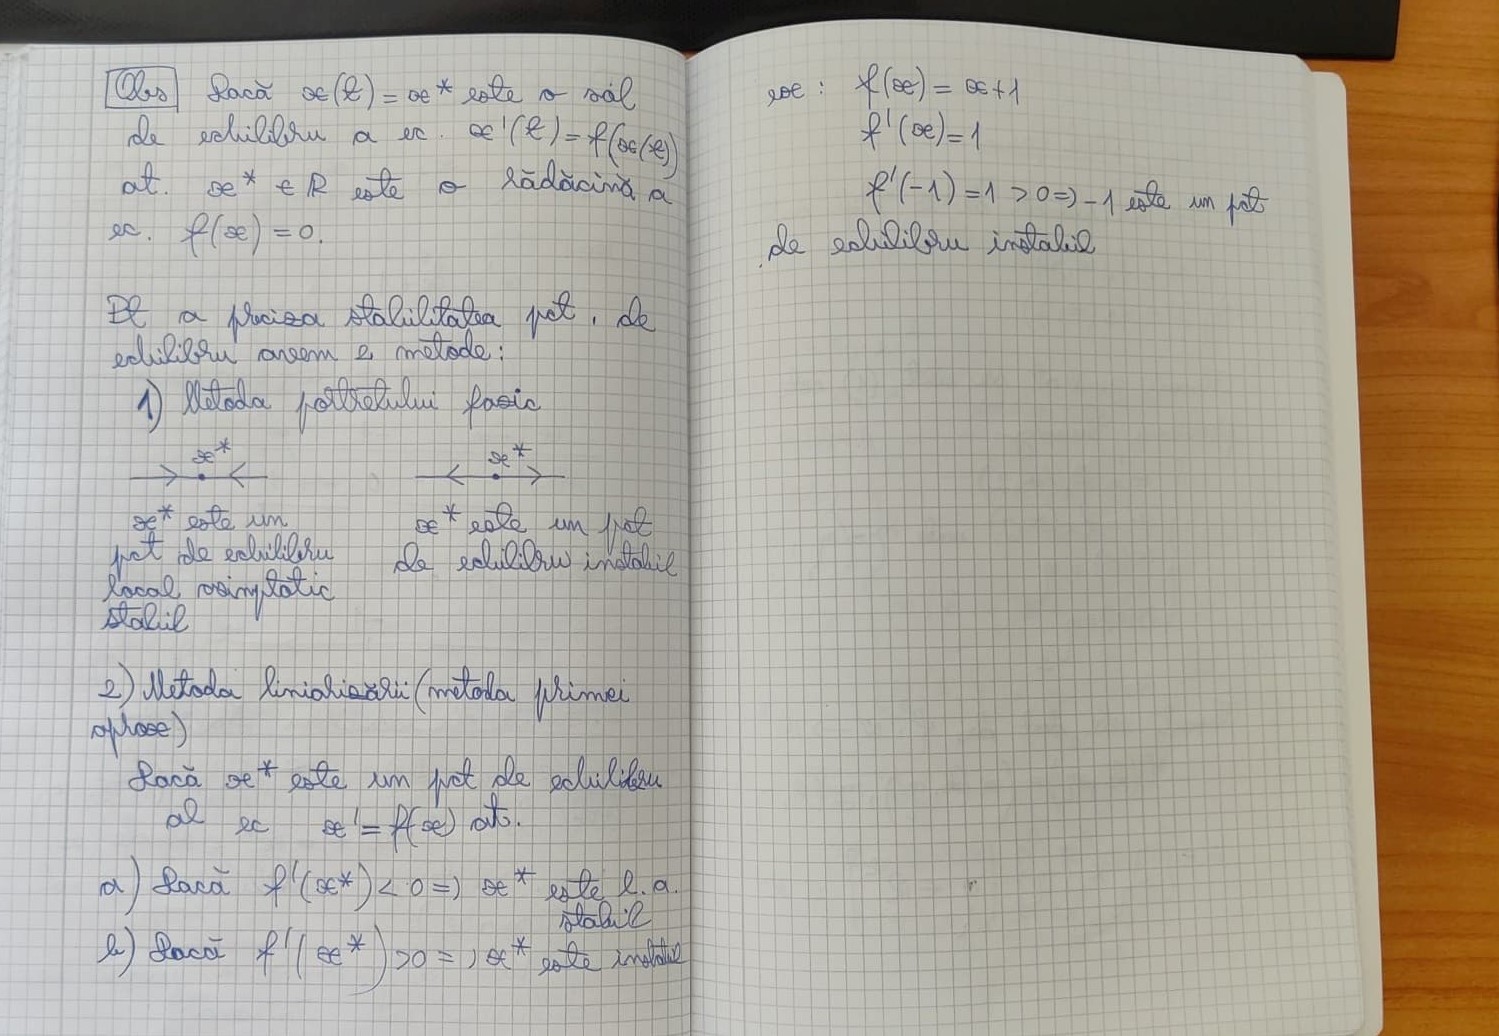 Obs Dacă x(t) = x* este o sol
de echilibru a ec. x'(t) = f(x(t))
at. x* ∈ R este o rădăcină a
ec. f(x) = 0.
Pt a preciza stabilitatea pct. de
echilibru avem 2 metode:
1) Metoda portretului fazic
x* x*
x* este un
pct de echilibru
local asimptotic
stabil
x* este un pct
de echilibru instabil
2) Metoda liniarizării (metoda primei
aprox)
Dacă x* este un pct de echilibru
al ec x' = f(x) at.
a) Dacă f'(x*) < 0 => x* este l.a.
stabil
b) Dacă f'(x*) > 0 => x* este instabil
ex: f(x) = x+1
f'(x) = 1
f'(-1) = 1 > 0 => -1 este un pct
de echilibru instabil